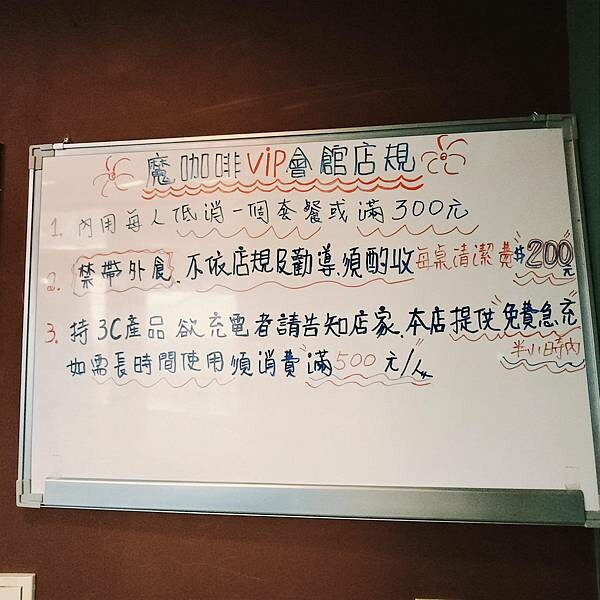 魔咖啡VIP會館店規
1. 內用每人低消一個套餐或滿300元
2. 禁帶外食、不依店規及勸導須酌收每桌清潔費$200元
3. 持3C產品欲充電者請告知店家、本店提供"免費急充"
半小時內
如需長時間使用須消費滿500元/人